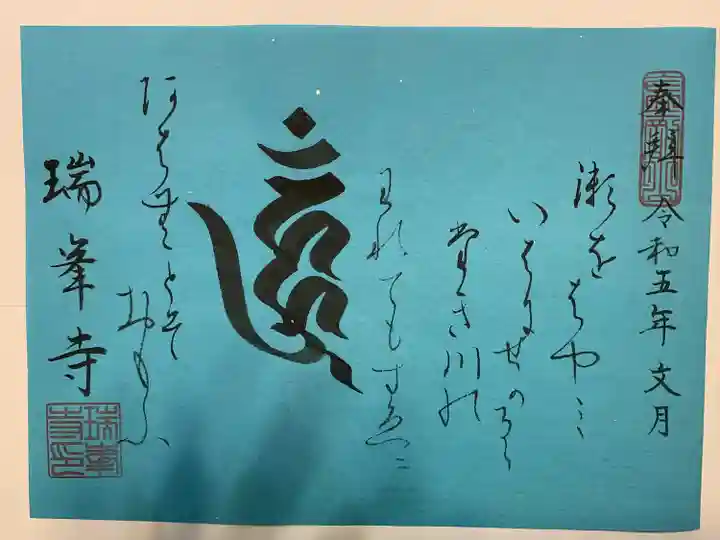 奉拜 令和五年 文月
瀬をはやミ
いはにせかるゝ
たき川の
われてもすゑに
阿はむとそ
おもふ
瑞峯寺
瑞峯寺印